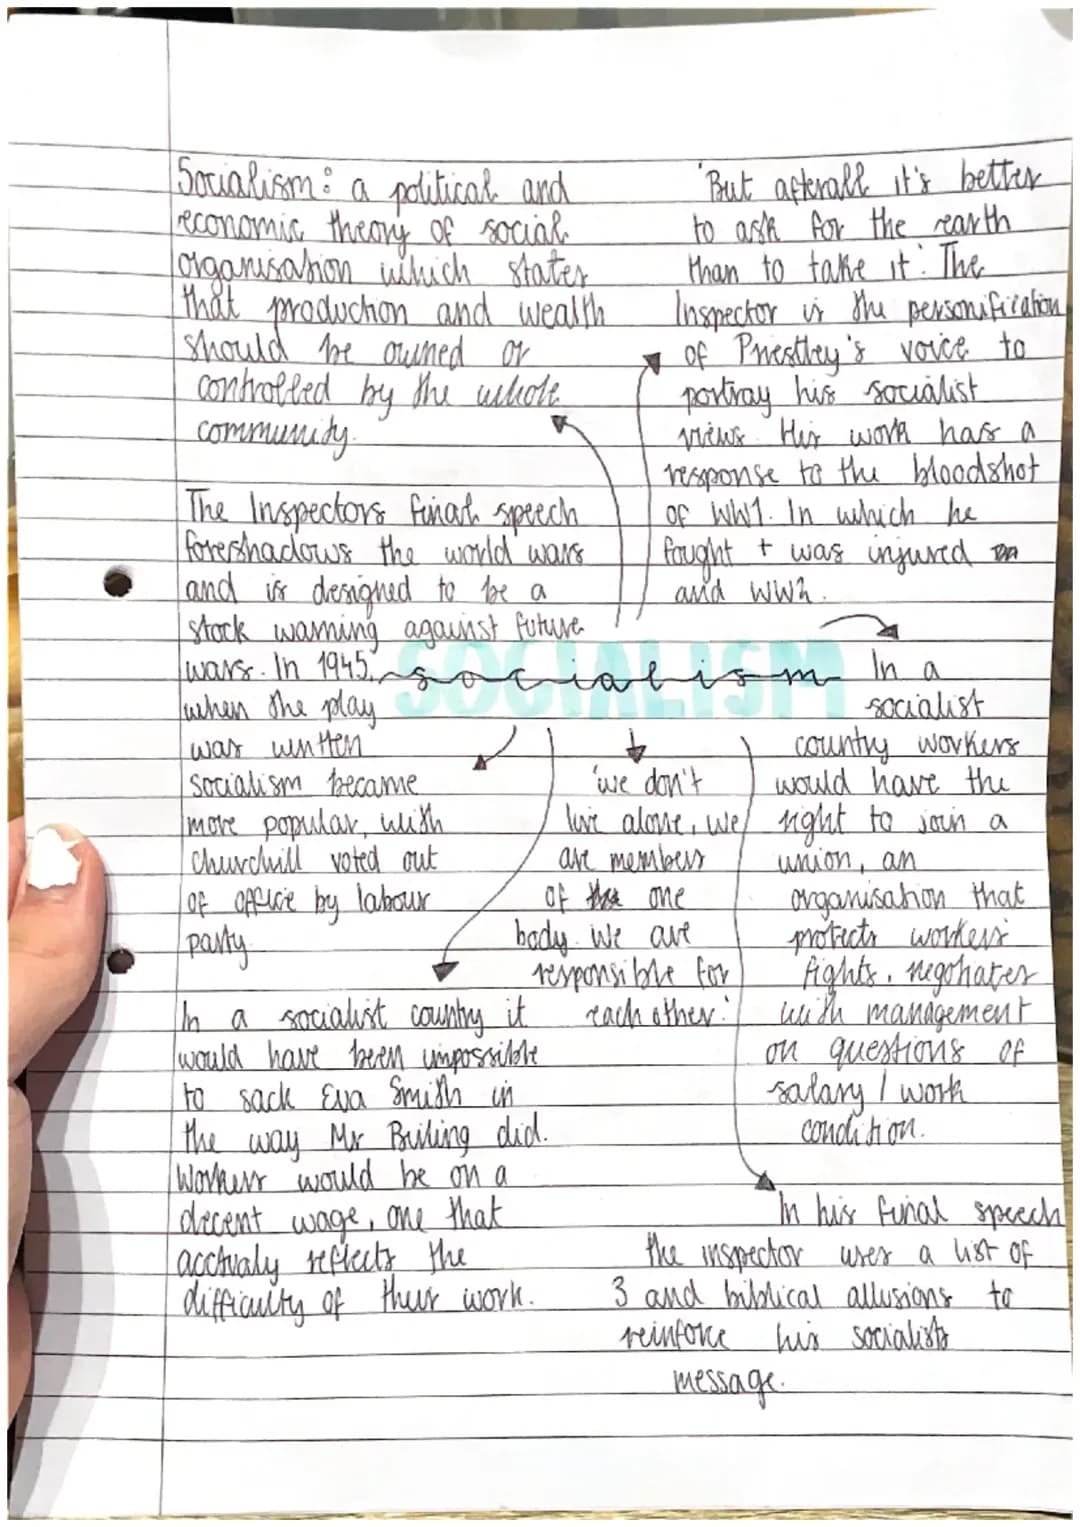 Socialism: a political and
economic theory of social
organisation which states
that production and wealth
should be owned or
controlled by the whole
community.
'But afterall it's better
to ask for the earth
than to take it'. The
Inspector is the personification
of Priestley's voice to
portray his socialist
views. His work has a
response to the bloodshot
of WW1. In which he
fought + was injured
and WW2.
The Inspectors final speech
foreshadows the world wars
and is designed to be a
stock warning against future
wars. In 1945,
when the play
was written
socialism became
more popular, with
churchill voted out
of office by labour
party
SOCIALISM
socialism
In a
socialist
country workers
would have the
right to join a
union, an
organisation that
protects workers
fights, negotiates
with management
on questions of
salary / work
condition.
'we don't
live alone, we
are members
of the one
body. We are
responsible for
each other.'
In a socialist country it
would have been impossible
to sack Eva Smith in
the way Mr Briling did.
Workers would be on a
decent wage, one that
acctualy reflects the
difficulty of their work.
In his final speech
the inspector uses a list of
3 and biblical allusions to
reinforce his socialists
message.